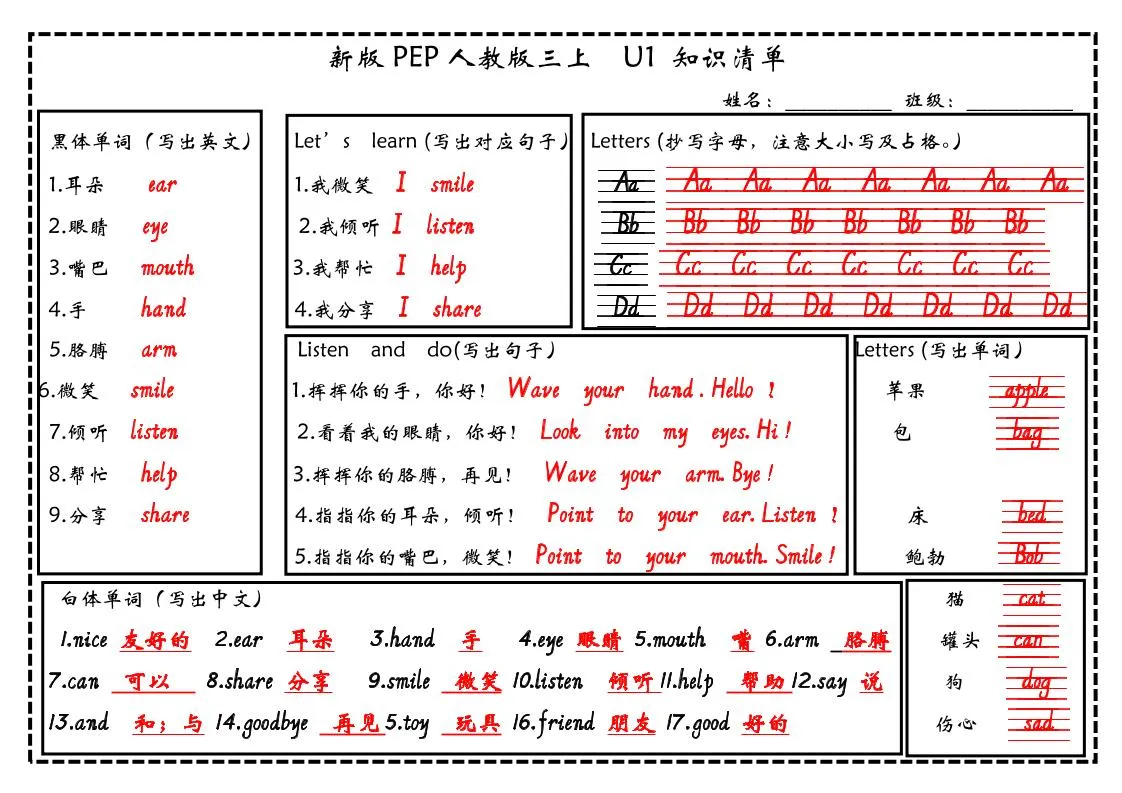 新版 PEP 人教版三上 U1 知识清单
姓名： 班级：
黑体单词（写出英文）
1.耳朵 ear
2.眼睛 eye
3.嘴巴 mouth
4.手 hand
5.胳膊 arm
6.微笑 smile
7.倾听 listen
8.帮忙 help
9.分享 share
Let’s learn (写出对应句子)
1.我微笑 I smile
2.我倾听 I listen
3.我帮忙 I help
4.我分享 I share
Letters (抄写字母，注意大小写及占格。)
Aa Aa Aa Aa Aa Aa Aa Aa
Bb Bb Bb Bb Bb Bb Bb Bb
Cc Cc Cc Cc Cc Cc Cc Cc
Dd Dd Dd Dd Dd Dd Dd Dd
Listen and do(写出句子)
1.挥挥你的手，你好！ Wave your hand. Hello !
2.看着我的眼睛，你好！ Look into my eyes. Hi !
3.挥挥你的胳膊，再见！ Wave your arm. Bye !
4.指指你的耳朵，倾听！ Point to your ear. Listen !
5.指指你的嘴巴，微笑！ Point to your mouth. Smile !
Letters (写出单词)
苹果 apple
包 bag
床 bed
鲍勃 Bob
猫 cat
罐头 can
狗 dog
伤心 sad
白体单词（写出中文）
1.nice 友好的 2.ear 耳朵 3.hand 手 4.eye 眼睛 5.mouth 嘴 6.arm 胳膊
7.can 可以 8.share 分享 9.smile 微笑 10.listen 倾听 11.help 帮助 12.say 说
13.and 和；与 14.goodbye 再见 5.toy 玩具 16.friend 朋友 17.good 好的